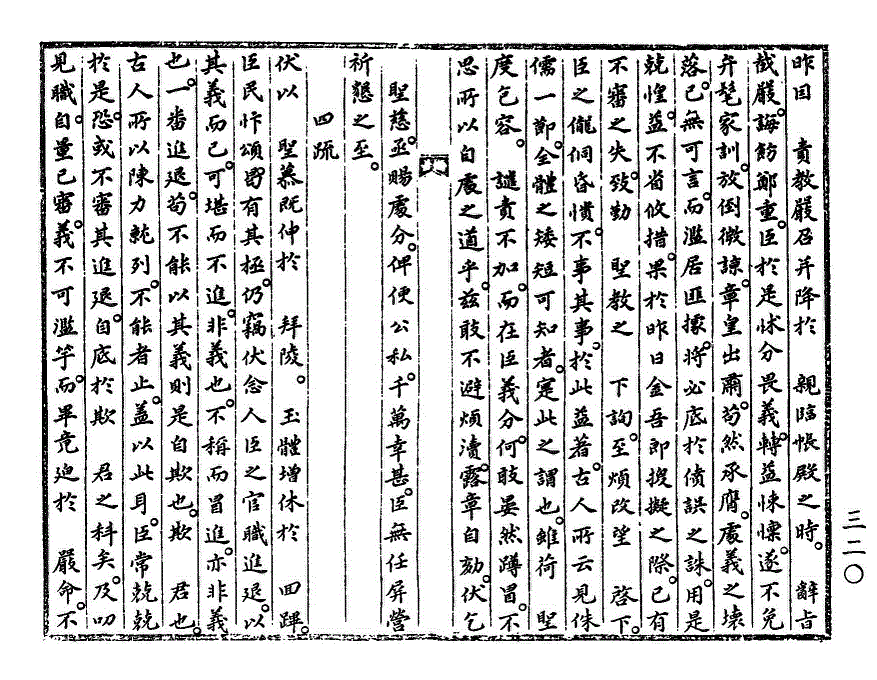 昨因　責教嚴召幷降於　親臨帳殿之時。辭旨
截嚴。誨飭鄭重。臣於是怵分畏義。轉益悚懍。遂不免
弁髦家訓。放倒微諫。章皇出肅。苟然承膺。處義之壞
落。已無可言。而濫居匪據。將必底於僨誤之誅。用是
兢惶。益不省攸措。果於昨日金吾郞擬擬之際。已有
不審之失。致勤　聖敎之　下詢。至煩改望　啓下。
臣之儱侗昏憒。不事其事。於此益著。古人所云見侏
儒一節。全體之矮短可知者。寔此之謂也。雖荷　聖
度包容。　譴責不加。而在臣義分。何敢晏然蹲冒。不
思所以自處之道乎。玆敢不避煩瀆。露章自劾。伏乞
　聖慈。亟賜處分。俾便公私。千萬幸甚。臣無任屛營
祈懇之至。
　　四疏
伏以　聖慕旣伸於　拜陵。　玉體增休於　回蹕。
臣民忭頌。曷有其極。仍竊伏念人臣之官職進退。以
其義而已。可堪而不進。非義也。不稱而冒進。亦非義
也。一番進退。苟不能以其義則是自欺也。欺　君也。
古人所以陳力就列。不能者止。蓋以此耳。臣常兢兢
於是。恐或不審其進退。自底於欺　君之科矣。及叨
見職。自量已審。義不可濫竽。而畢竟迫於　嚴命。不
三二〇